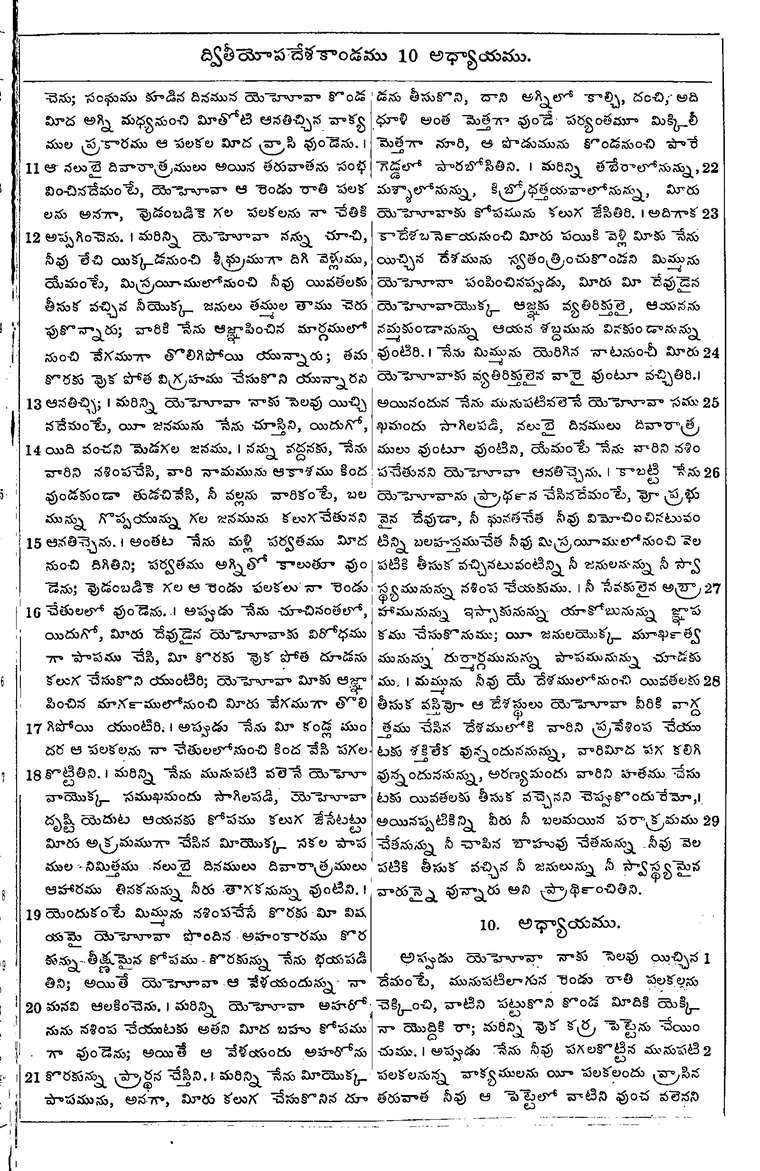 ద్వితీయోపదేశకాండము 10 అధ్యాయము.
చెను; సంఘము కూడిన దినమున యెహోవా కొండ
మీద అగ్ని మధ్యనుంచి మీతోటి ఆనతిచ్చిన వాక్య
ముల ప్రకారము ఆ పలకల మీద వ్రాసి వుండెను. ।
11 ఆ నలుబై దివారాత్రములు అయిన తరువాతను సంభ
వించినదేమంటే, యెహోవా ఆ రెండు రాతి పలక
లను అనగా, వుడంబడికె గల పలకలను నా చేతికి
12 అప్పగించెను. । మరిన్ని యెహోవా నన్ను చూచి,
నీవు లేచి యిక్కడనుంచి శీఘ్రముగా దిగి వెళ్లుము,
యేమంటే, మిస్రయీములోనుంచి నీవు యివతలకు
తీసుక వచ్చిన నీయొక్క జనులు తమ్ముల తాము చెరు
పుకొన్నారు; వారికి నేను ఆజ్ఞాపించిన మార్గములో
నుంచి వేగముగా తొలిగిపోయి యున్నారు; తమ
కొరకు వుక పోత విగ్రహము చేసుకొని యున్నారని
13 ఆనతిచ్చి; । మరిన్ని యెహోవా నాకు సెలవు యిచ్చి
నదేమంటే, యీ జనమును నేను చూస్తిని, యిదుగో,
14 యిది వంచని మెడగల జనము. । నన్ను వద్దనకు, నేను
వారిని నశింపచేసి, వారి నామమును ఆకాశము కింద
వుండకుండా తుడచివేసి, నీ వల్లను వారికంటే, బల
మున్ను గొప్పయున్ను గల జనమును కలుగచేతునని
15 ఆనతిచ్చెను. । అంతట నేను మళ్లి పర్వతము మీద
నుంచి దిగితిని; పర్వతము అగ్నితో కాలుతూ వుం
డెను; వుడంబడికె గల ఆ రెండు పలకలు నా రెండు
16 చేతులలో వుండెను. । అప్పుడు నేను చూచినంతలో,
యిదుగో, మీరు దేవుడైన యెహోవాకు విరోధము
గా పాపము చేసి, మీ కొరకు వుక పోత దూడను
కలుగ చేసుకొని యుంటిరి; యెహోవా మీకు ఆజ్ఞా
పించిన మార్గములోనుంచి మీరు వేగముగా తొలి
17 గిపోయి యుంటిరి. । అప్పుడు నేను మీ కండ్ల ముం
దర ఆ పలకలను నా చేతులలోనుంచి కింద వేసి పగల
18 కొట్టితిని. । మరిన్ని నేను మునుపటి వలెనే యెహో
వాయొక్క సముఖమందు సాగిలపడి, యెహోవా
దృష్టి యెదుట ఆయనకు కోపము కలుగ జేసేటట్టు
మీరు అక్రమముగా చేసిన మీయొక్క సకల పాప
ముల నిమిత్తము నలుబై దినములు దివారాత్రములు
ఆహారము తినకనున్ను నీరు తాగకనున్ను వుంటిని. ।
19 యెందుకంటే మిమ్మును నశింపచేసే కొరకు మీ విష
యమై యెహోవా పొందిన అహంకారము కొర
కున్ను తీక్ష్ణమైన కోపము కొరకున్ను నేను భయపడి
తిని; అయితే యెహోవా ఆ వేళయందున్ను నా
20 మనవి ఆలకించెను. । మరిన్ని యెహోవా అహరో
నును నశింప చేయుటకు అతని మీద బహు కోపము
గా వుండెను; అయితే ఆ వేళయందు అహరోను
21 కొరకున్ను ప్రార్థన చేస్తిని. । మరిన్ని నేను మీయొక్క
పాపమును, అనగా, మీరు కలుగ చేసుకొనిన దూ
డను తీసుకొని, దాని అగ్నిలో కాల్చి, దంచి, అది
ధూళి అంత మెత్తగా వుండే పర్యంతమూ మిక్కిలీ
మెత్తగా నూరి, ఆ పొడుమును కొండనుంచి పారే
గెడ్డలో పారబోసితిని. । మరిన్ని తబేరాలోనున్ను, 22
మశ్శాలోనున్ను, కిబ్రోథత్తయవాలోనున్ను, మీరు
యెహోవాకు కోపమును కలుగ జేసితిరి. । అదిగాక 23
కాదేశబర్నెయనుంచి మీరు పయికి వెళ్లి మీకు నేను
యిచ్చిన దేశమును స్వతంత్రించుకొండని మిమ్మును
యెహోవా పంపించినప్పుడు, మీరు మీ దేవుడైన
యెహోవాయొక్క ఆజ్ఞకు వ్యతిరిక్తులై, ఆయనను
నమ్మకుండానున్ను ఆయన శబ్దమును వినకుండానున్ను
వుంటిరి. । నేను మిమ్మును యెరిగిన నాటనుంచీ మీరు 24
యెహోవాకు వ్యతిరిక్తులైన వారై వుంటూ వచ్చితిరి. ।
అయినందున నేను మునుపటివలెనే యెహోవా సము 25
ఖమందు సాగిలపడి, నలుబై దినములు దివారాత్ర
ములు వుంటూ వుంటిని, యేమంటే నేను వారిని నశిం
పచేతునని యెహోవా ఆనతిచ్చెను. । కాబట్టి నేను 26
యెహోవాను ప్రార్థన చేసినదేమంటే, వో ప్రభు
వైన దేవుడా, నీ ఘనతచేత నీవు విమోచించినటువం
టిన్ని బలహస్తముచేత నీవు మిస్రయీములోనుంచి వెల
పటికి తీసుక వచ్చినటువంటిన్ని నీ జనులనున్ను నీ స్వా
స్థ్యమునున్ను నశింప చేయకుము. । నీ సేవకులైన అబ్రా 27
హామునున్ను ఇస్సాకునున్ను యాకోబునున్ను జ్ఞాప
కము చేసుకొనుము; యీ జనులయొక్క మూర్ఖత్వ
మునున్ను దుర్మార్గమునున్ను పాపమునున్ను చూడకు
ము. । మమ్మును నీవు యే దేశములోనుంచి యివతలకు 28
తీసుక వస్తివో ఆ దేశస్థులు యెహోవా వీరికి వాగ్ద
త్తము చేసిన దేశములోకి వారిని ప్రవేశింప చేయు
టకు శక్తిలేక వున్నందుననున్ను, వారిమీద పగ కలిగి
వున్నందుననున్ను, అరణ్యమందు వారిని హతము చేసు
టకు యివతలకు తీసుక వచ్చెనని చెప్పుకొందురేమో, ।
అయినప్పటికిన్ని వీరు నీ బలమయిన పరాక్రమము 29
చేతనున్ను నీ చాపిన బాహువు చేతనున్ను నీవు వెల
పటికి తీసుక వచ్చిన నీ జనులున్ను నీ స్వాస్థ్యమైన
వారున్నై వున్నారు అని ప్రార్థించితిని.
10. అధ్యాయము.
అప్పుడు యెహోవా నాకు సెలవు యిచ్చిన 1
దేమంటే, మునుపటిలాగున రెండు రాతి పలకల్ను
చెక్కించి, వాటిని పట్టుకొని కొండ మీదికి యెక్కి
నా యొద్దికి రా; మరిన్ని వుక కర్ర పెట్టెను చేయిం
చుము. । అప్పుడు నేను నీవు పగలకొట్టిన మునుపటి 2
పలకలనున్న వాక్యములను యీ పలకలందు వ్రాసిన
తరువాత నీవు ఆ పెట్టెలో వాటిని వుంచ వలెనని